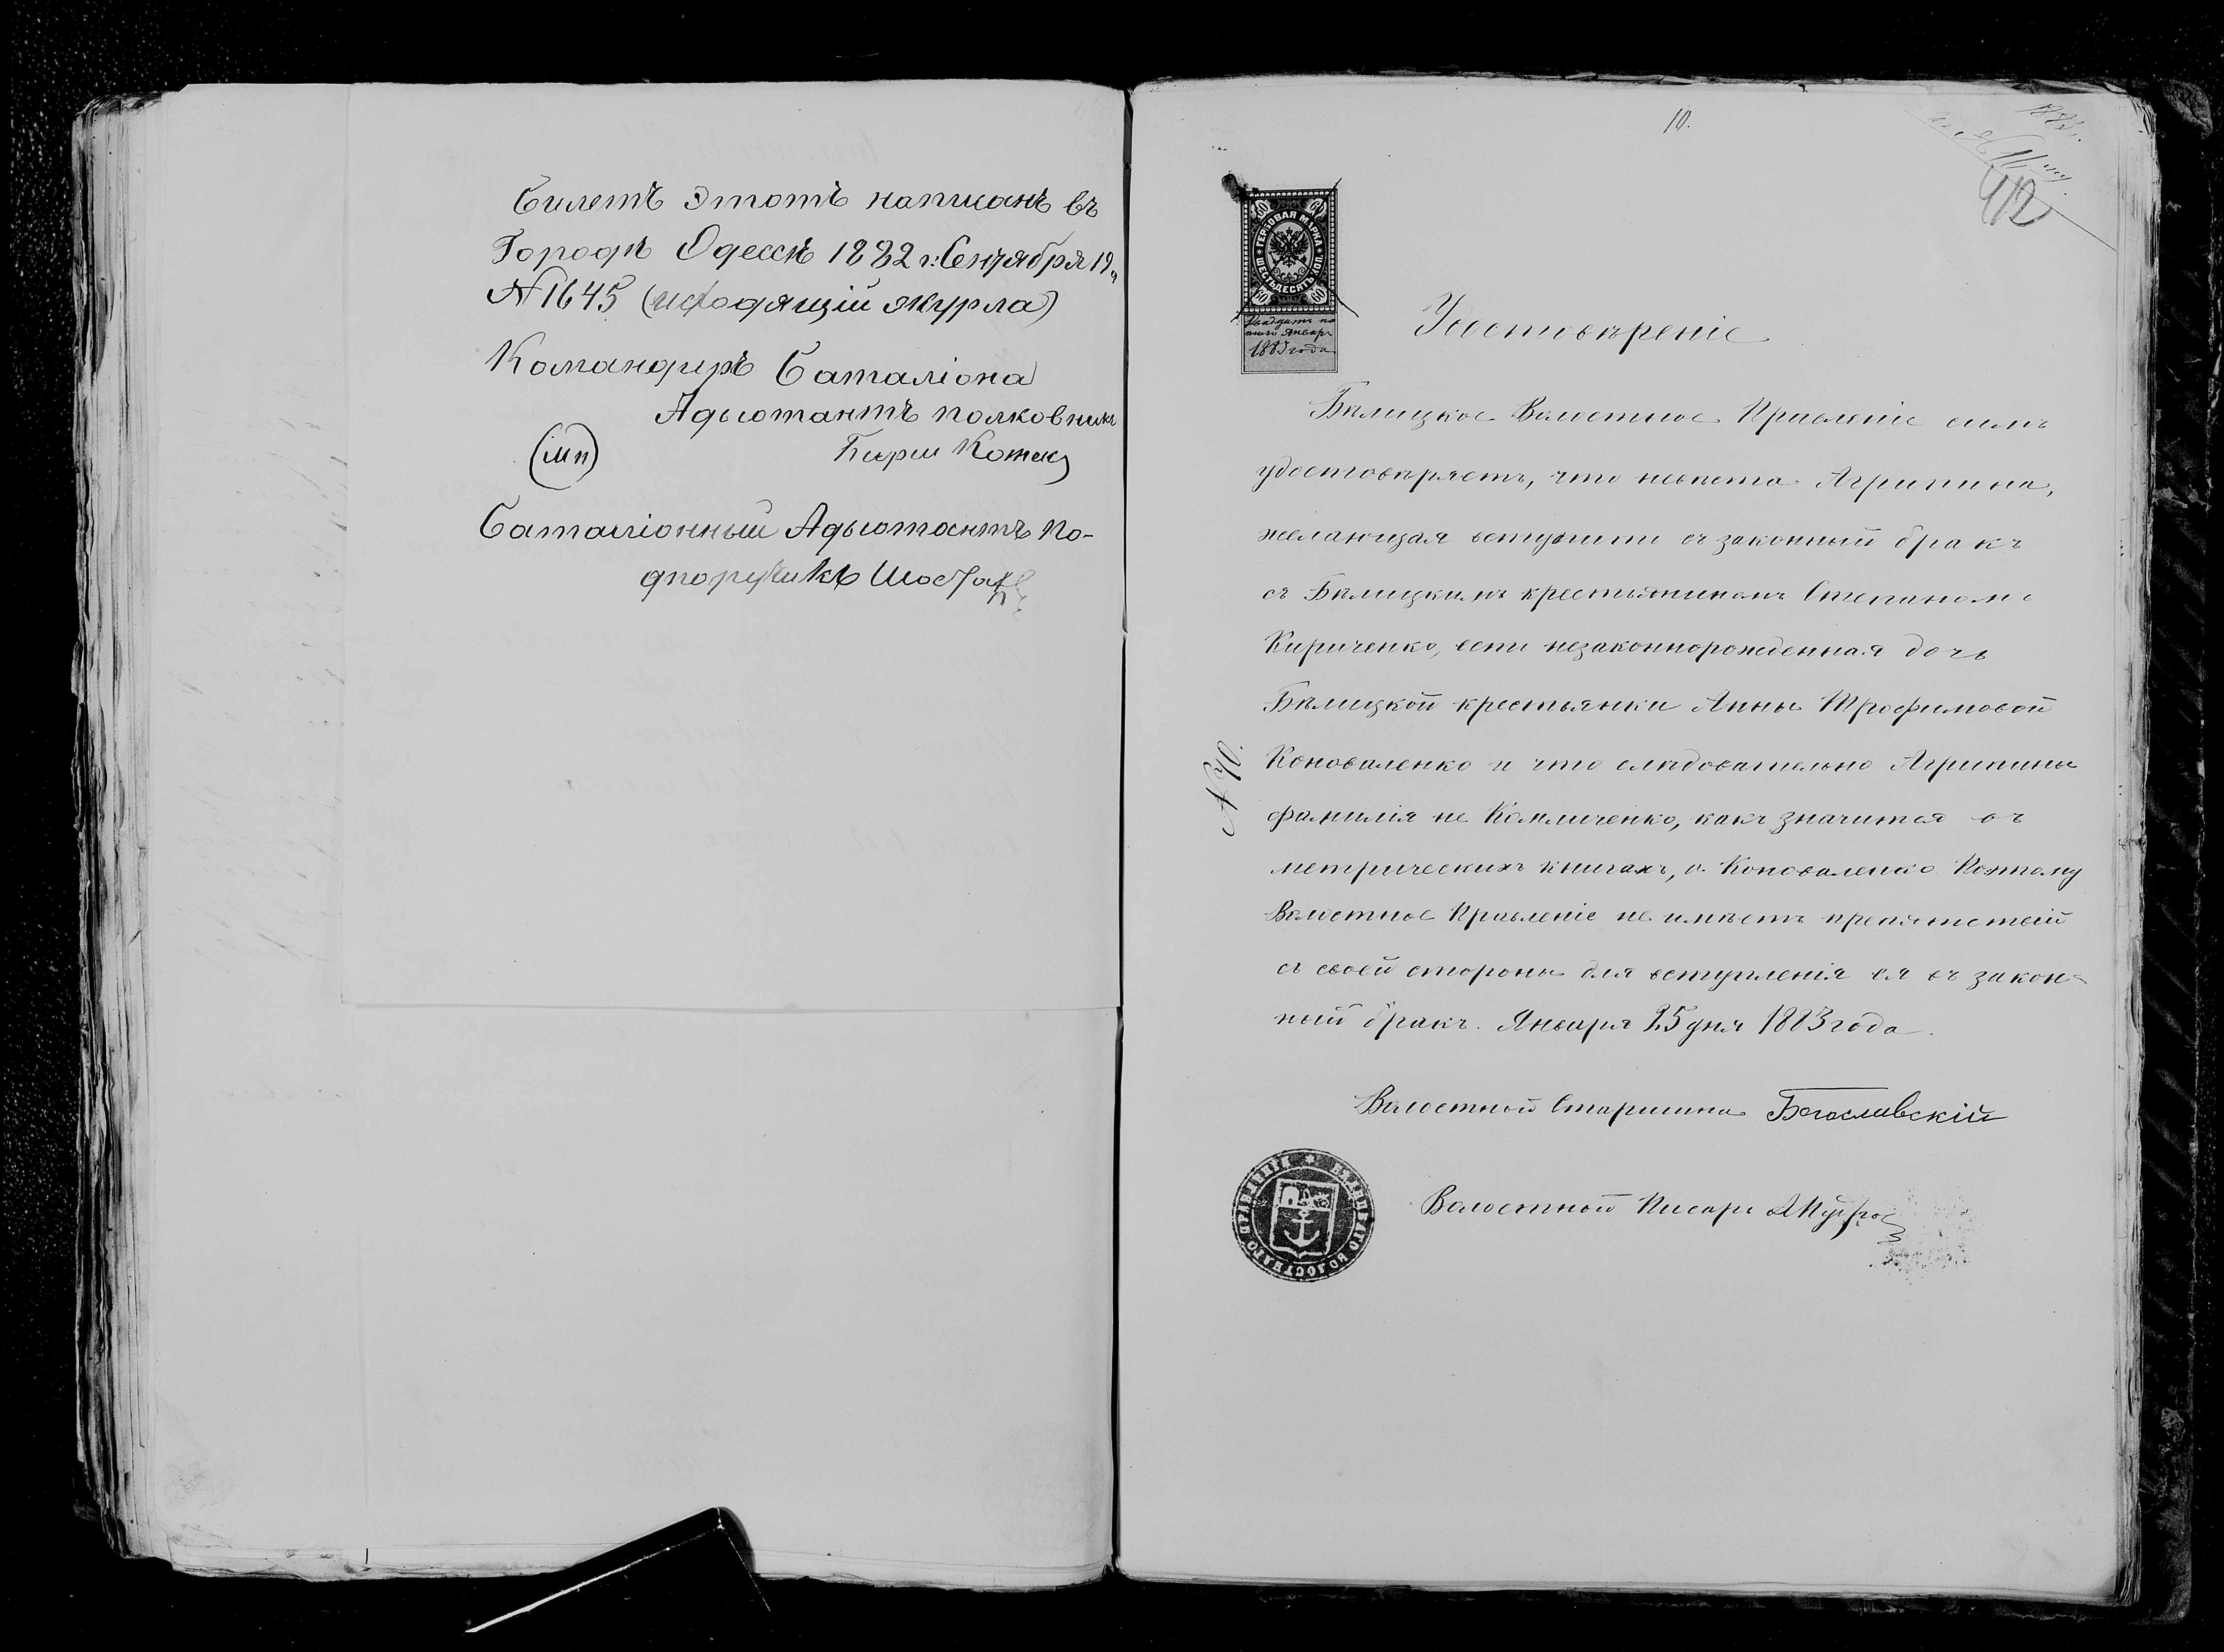 Билетъ этотъ написанъ въ
Городѣ Одессѣ 1882 г: Сентября 19„
№ 1645 (исходящій журла)
Командиръ баталіона
Адьютантъ полковникъ
(мп)
Баталіонный Адьютантъ По-
дпоручикъ
10.
42
60 60
ГЕРБОВАЯ МАРКА
ШЕСТЬДЕСЯТЪ КОП.
60 60
Двадцать пя
таго Январ
1883 года
Удостовѣреніе
Бѣлицкое Волостное Правленіе симъ
удостовѣряетъ, что невѣста Агрипина,
желающая вступити въ законный бракъ
съ Бѣлицкимъ крестьяниномъ Степаномъ
Кириченко, есть незаконнорожденная дочь
Бѣлицкой крестьянки Анны Трофимовой
Коноваленко и что слѣдовательно Агрипины
фамилія не Комличенко, какъ значится въ
метрическихъ книгахъ, а Коноваленко. Поэтому
Волостное Правленіе не имѣетъ препятствій
съ своей стороны для вступленія ея въ закон-
ный бракъ. Января 25 дня 1883 года.
№ 70.
Волостной Старшина Богославскій
Волостной Писарь
БѢЛИЦКАГО ВОЛОСТНАГО ПРАВЛЕНІЯ